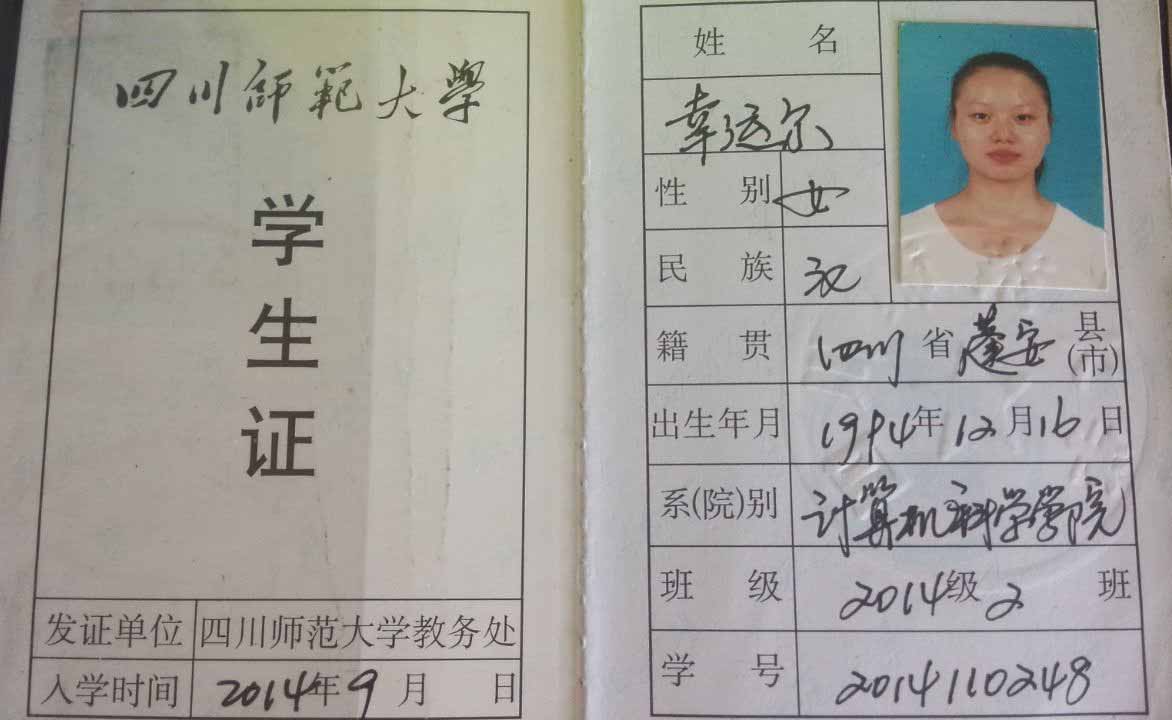 四川師範大學
学
生
证
发证单位 四川师范大学教务处
入学时间 2014年9月 日
姓 名
幸运尔
性 别 女
民 族 汉
籍 贯 四川省蓬安县(市)
出生年月 1994年12月16日
系(院)别 计算机科学学院
班 级 2014级2班
学 号 2014110248